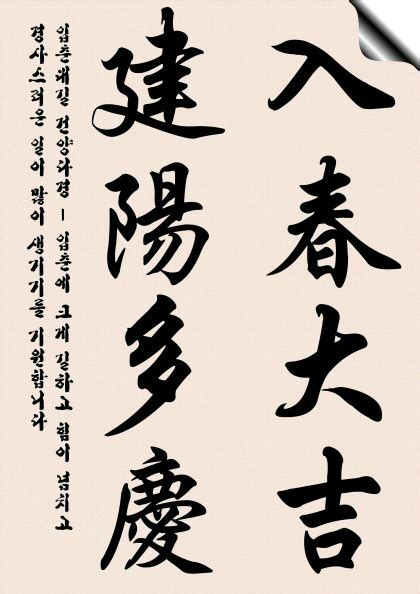 入春大吉
建陽多慶
입춘대길 건양다경 - 입춘에 크게 길하고 힘이 넘치고
경사스러운 일이 많이 생기기를 기원합니다